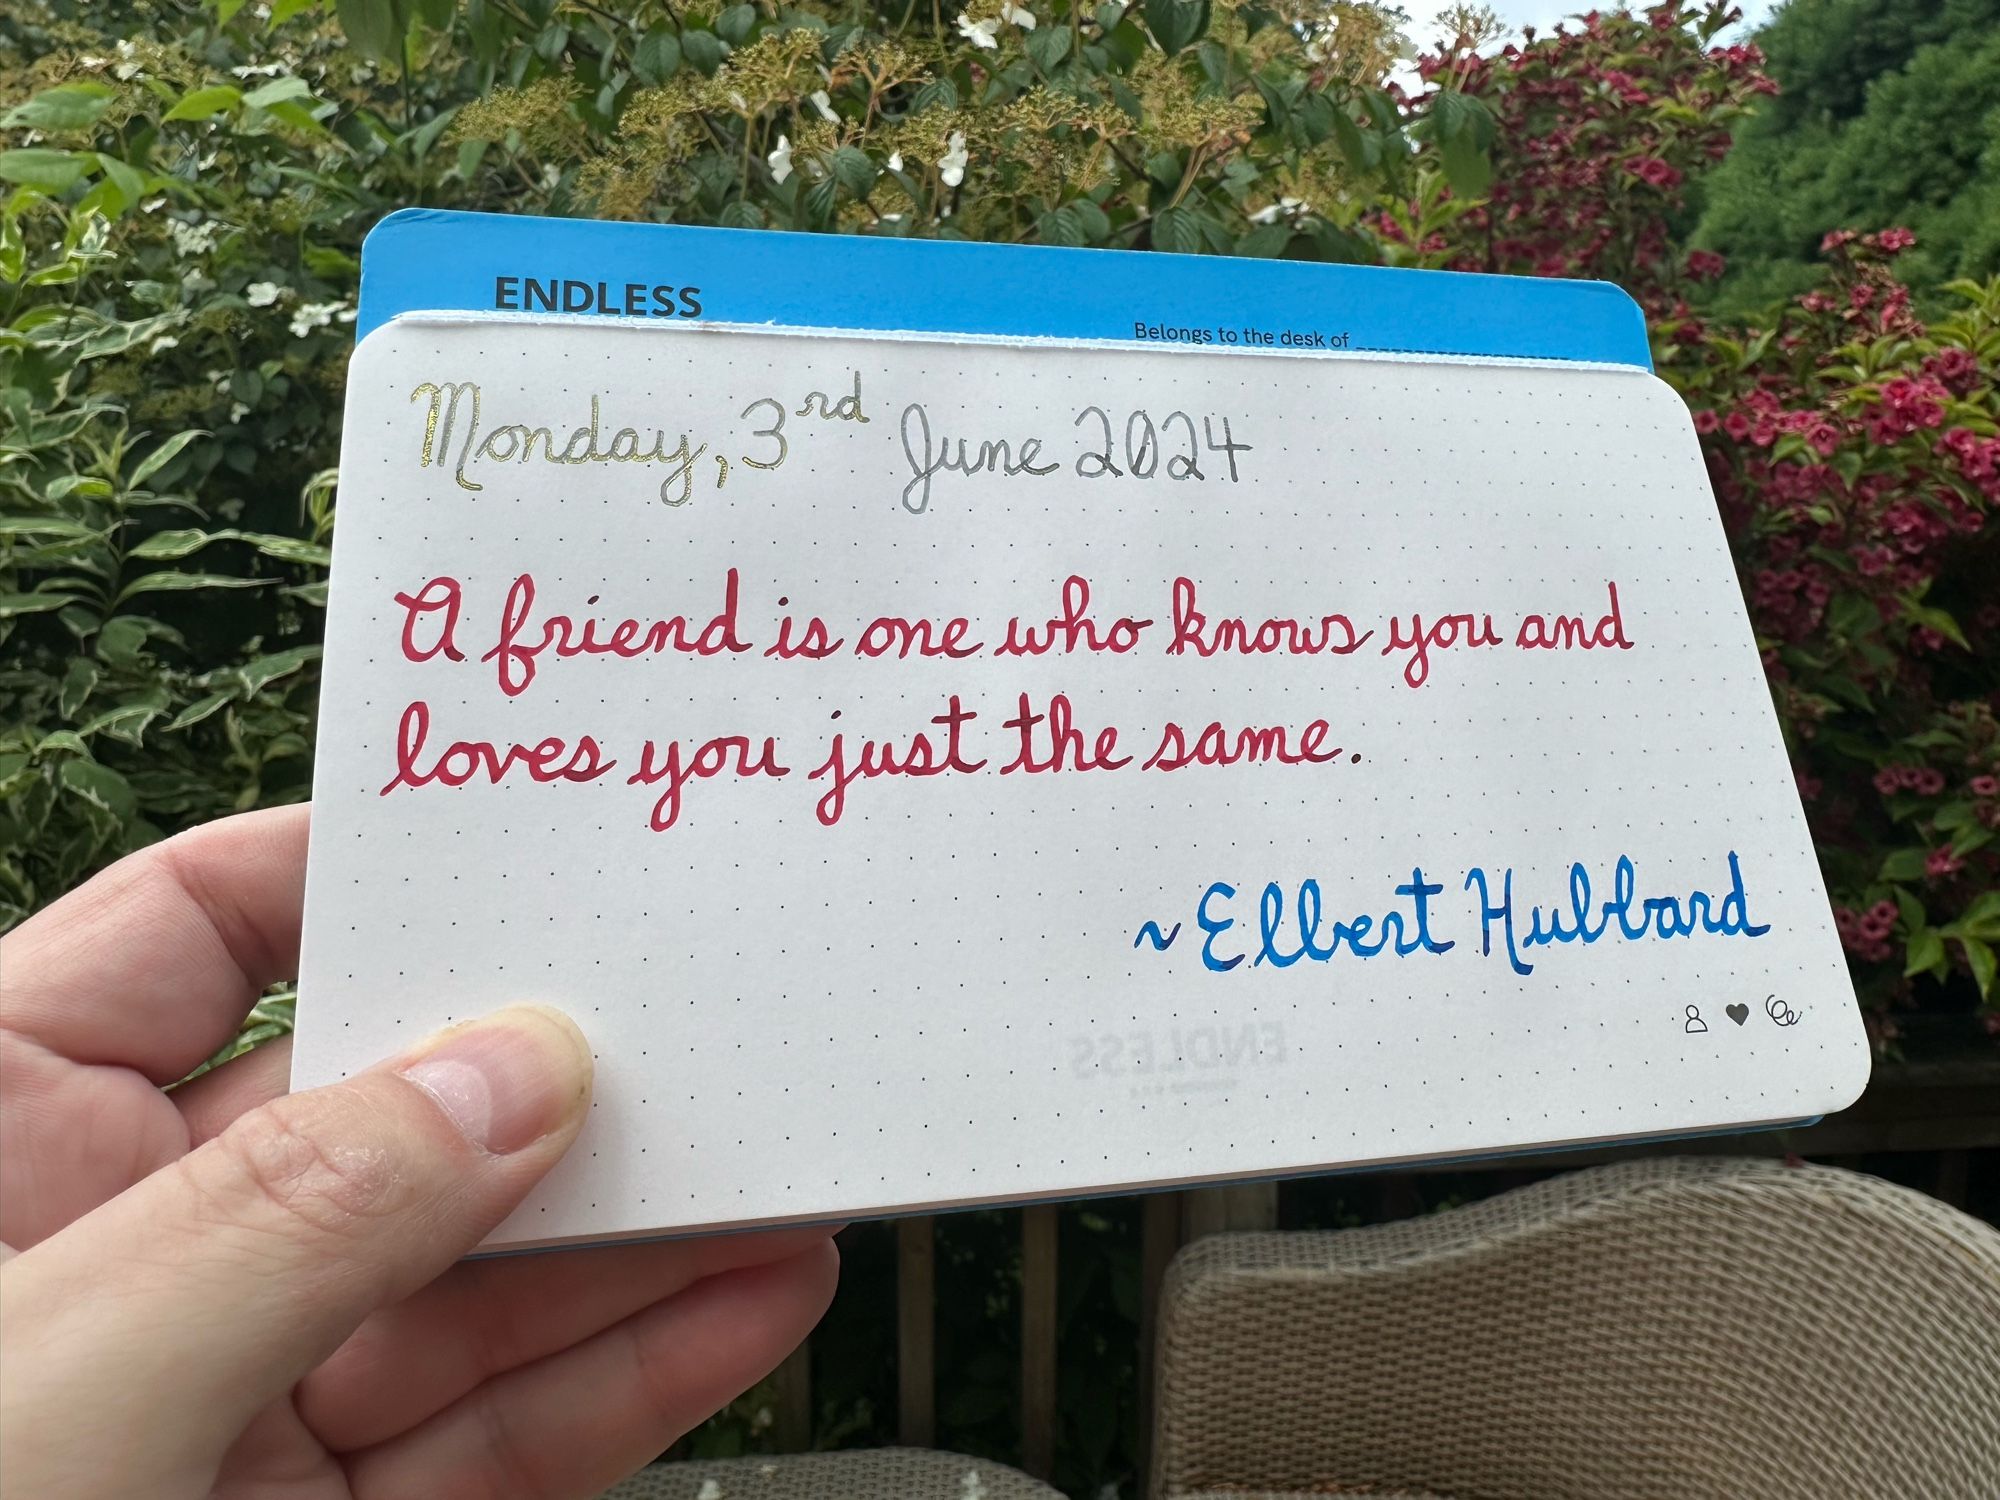 ENDLESS
Belongs to the desk of
Monday, 3rd June 2024
A friend is one who knows you and
loves you just the same.
~Elbert Hubbard
ENDLESS